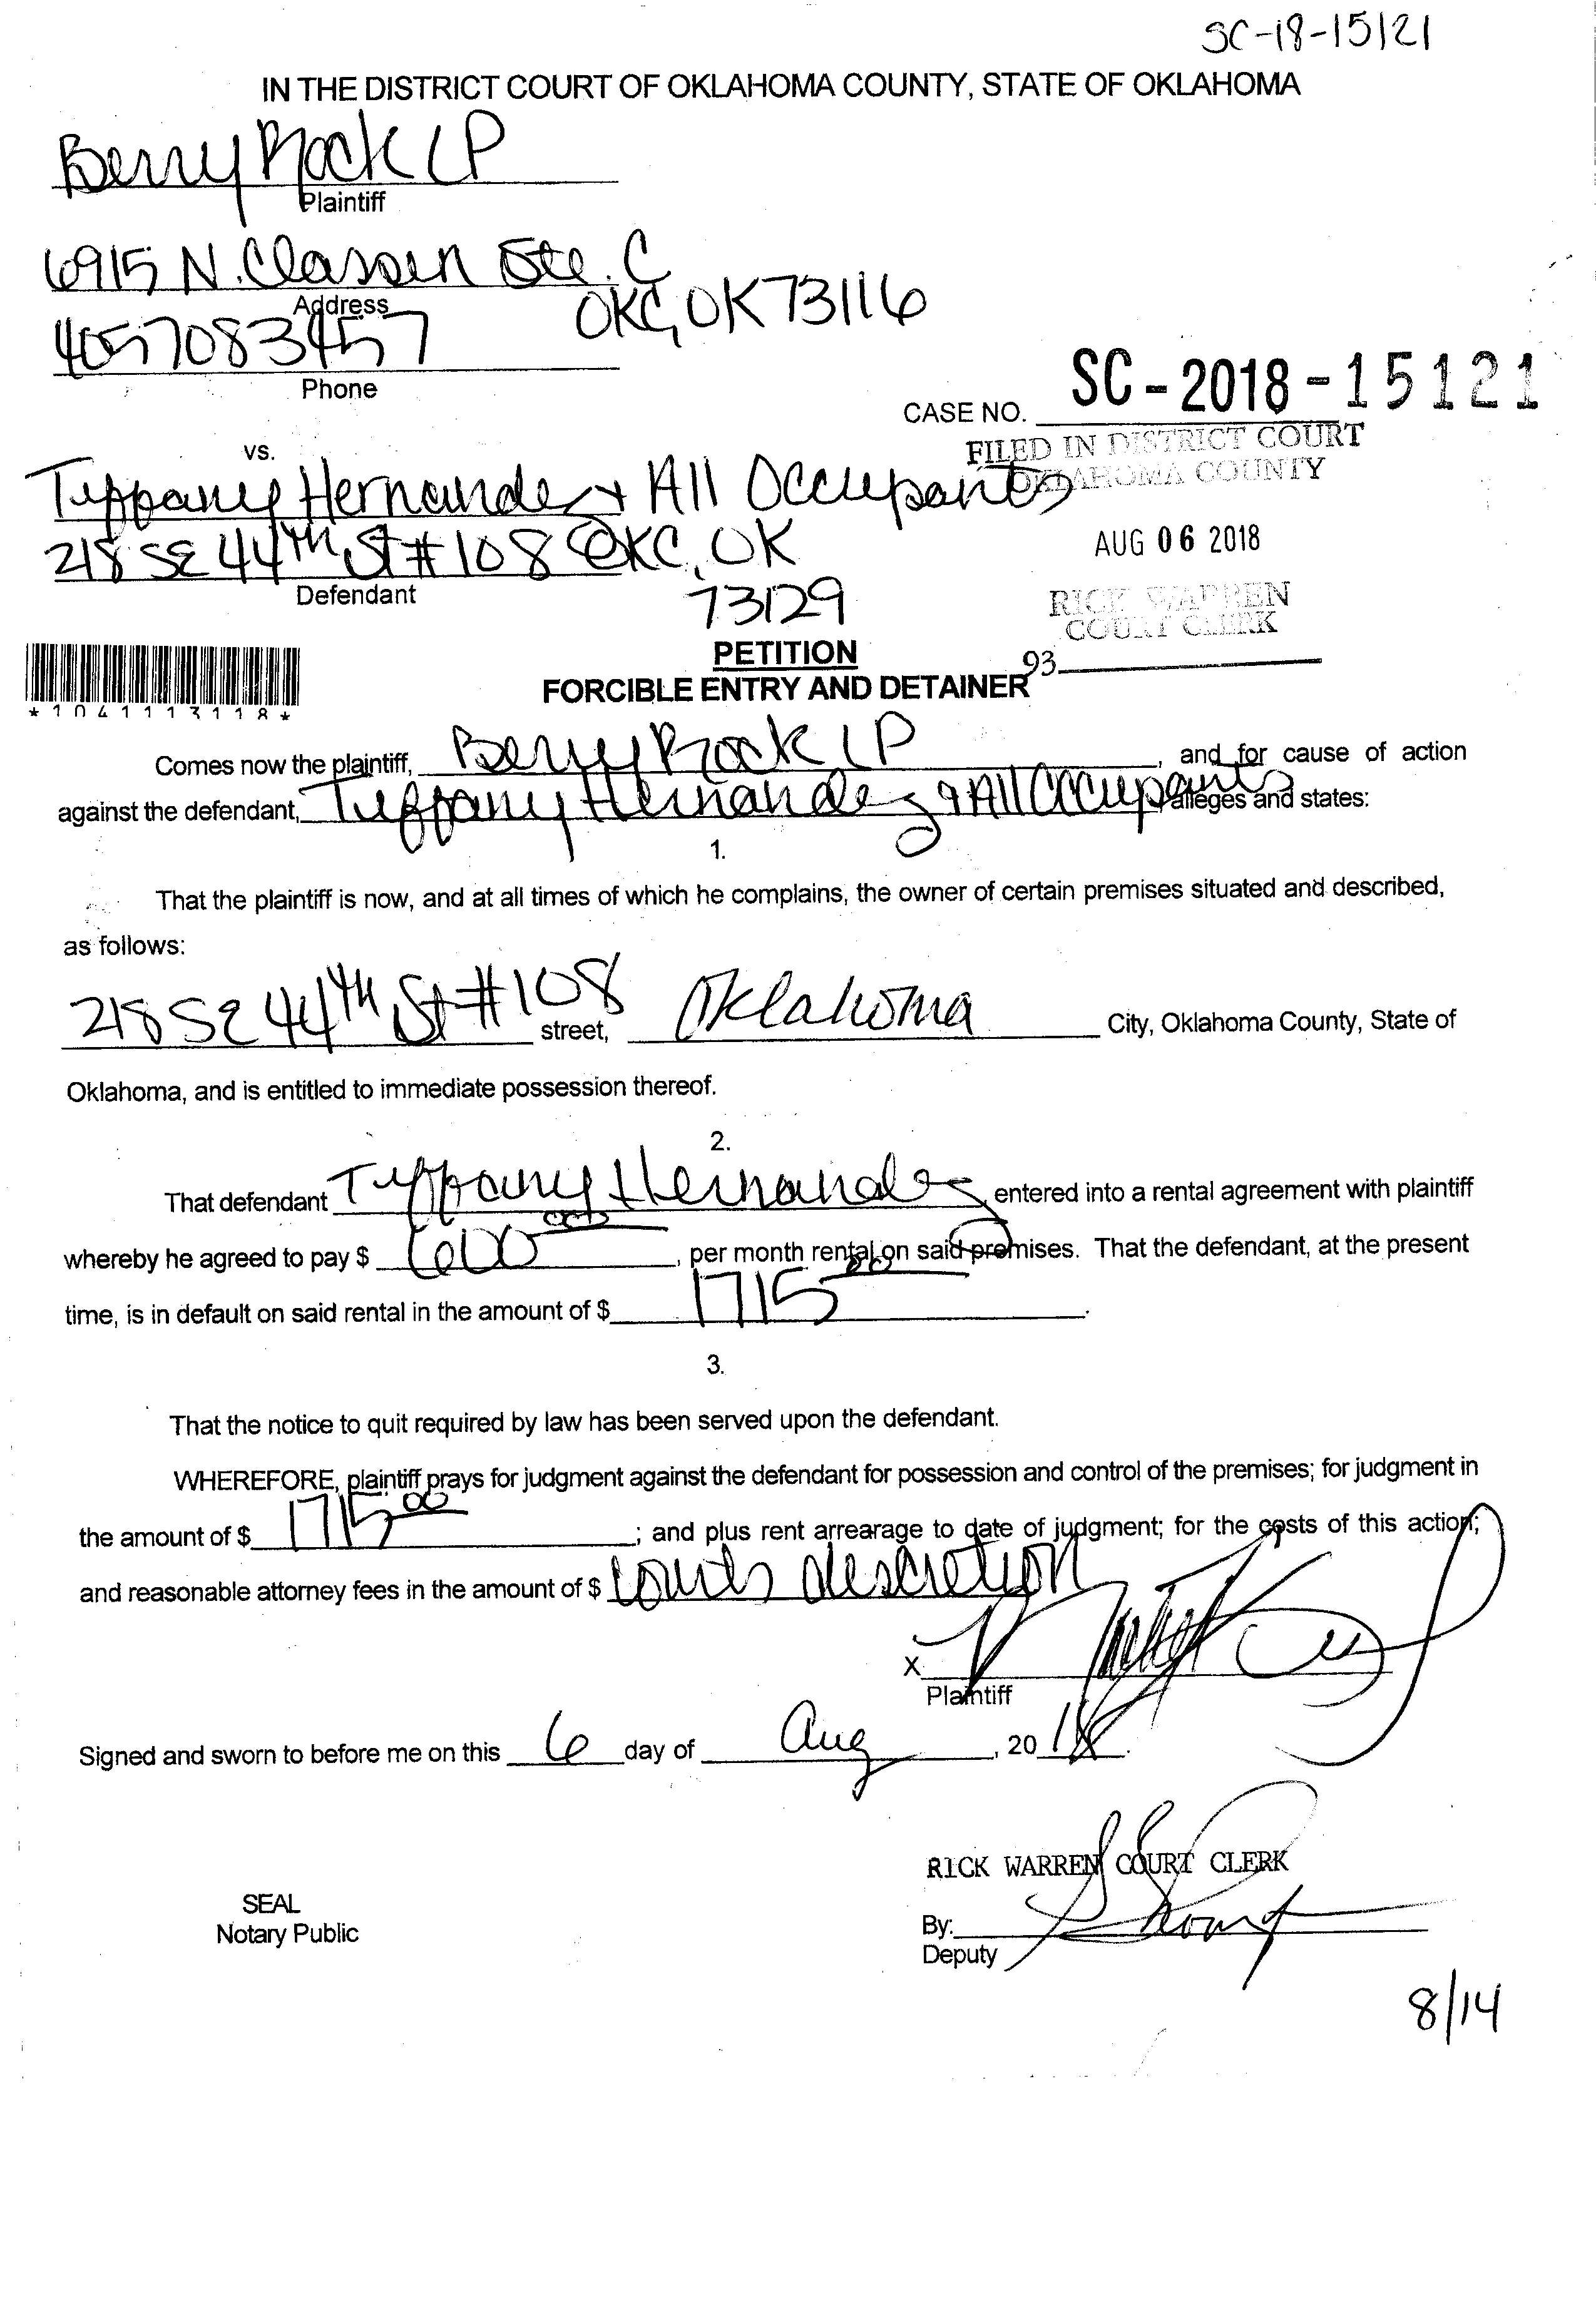 SC-18-15121
IN THE DISTRICT COURT OF OKLAHOMA COUNTY, STATE OF OKLAHOMA
Berry Rock LP
Plaintiff
6915 N. Classen Ste. C
Address
OKC, OK 73116
4057083457
Phone
CASE NO. SC-2018-15121
FILED IN DISTRICT COURT
OKLAHOMA COUNTY
vs.
Tiffany Hernandez + All Occupants
AUG 06 2018
218 SE 44th St #108 OKC, OK
Defendant
73129
RICK WARREN
COURT CLERK
PETITION
93
FORCIBLE ENTRY AND DETAINER
*1041113118*
Comes now the plaintiff, Berry Rock LP, and for cause of action
against the defendant, Tiffany Hernandez & All Occupants alleges and states:
1.
That the plaintiff is now, and at all times of which he complains, the owner of certain premises situated and described,
as follows:
218 SE 44th St #108 street, Oklahoma City, Oklahoma County, State of
Oklahoma, and is entitled to immediate possession thereof.
2.
That defendant Tiffany Hernandez entered into a rental agreement with plaintiff
whereby he agreed to pay $ 600 00, per month rental on said premises. That the defendant, at the present
time, is in default on said rental in the amount of $ 1715 00.
3.
That the notice to quit required by law has been served upon the defendant.
WHEREFORE, plaintiff prays for judgment against the defendant for possession and control of the premises; for judgment in
the amount of $ 1715 00; and plus rent arrearage to date of judgment; for the costs of this action;
and reasonable attorney fees in the amount of $ courts descretion
X
Plaintiff
Signed and sworn to before me on this 6 day of Aug, 2018.
RICK WARREN COURT CLERK
SEAL
Notary Public
By:
Deputy
8/14